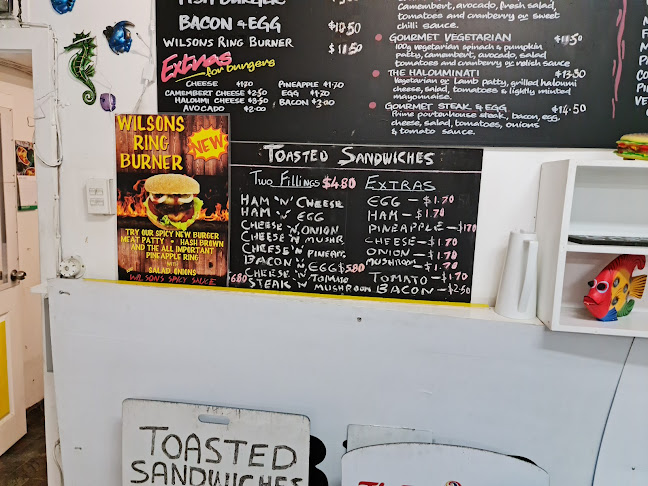 BACON & EGG $10.50
WILSONS RING BURNER $11.50
Extras for burgers
CHEESE $1.70 PINEAPPLE $1.70
CAMEMBERT CHEESE $2.50 EGG $1.70
HALOUMI CHEESE $3.50 BACON $3.00
AVOCADO $2.00
Camembert, avocado, fresh salad,
tomatoes and cranberry or sweet
chilli sauce.
GOURMET VEGETARIAN $11.50
100g vegetarian spinach & pumpkin
patty, camembert, avocado, salad
tomatoes and cranberry or relish sauce
THE HALOUMINATI $13.30
Vegetarian or Lamb patty, grilled haloumi
cheese, salad, tomatoes & lightly minted
mayonnaise.
GOURMET STEAK & EGG $14.50
Prime porterhouse steak, bacon, egg,
cheese, salad, tomatoes, onions
& tomato sauce.
WILSONS
RING
BURNER
NEW
TRY OUR SPICY NEW BURGER
MEAT PATTY • HASH BROWN
AND THE ALL IMPORTANT
PINEAPPLE RING
WITH
SALAD ONIONS
WILSON'S SPICY SAUCE
TOASTED SANDWICHES
TWO FILLINGS $4.80
HAM 'N' CHEESE
HAM 'N' EGG
CHEESE 'N' ONION
CHEESE 'N' MUSHR
CHEESE 'N' PINEAPP.
BACON 'N' EGG $5.80
CHEESE 'N' TOMATO
$6.80 STEAK 'N' MUSHROOM
EXTRAS
EGG - $1.70
HAM - $1.70
PINEAPPLE - $1.70
CHEESE - $1.70
ONION - $1.70
MUSHROOM - $1.70
TOMATO - $1.70
BACON - $2.50
TOASTED
SANDWICHES